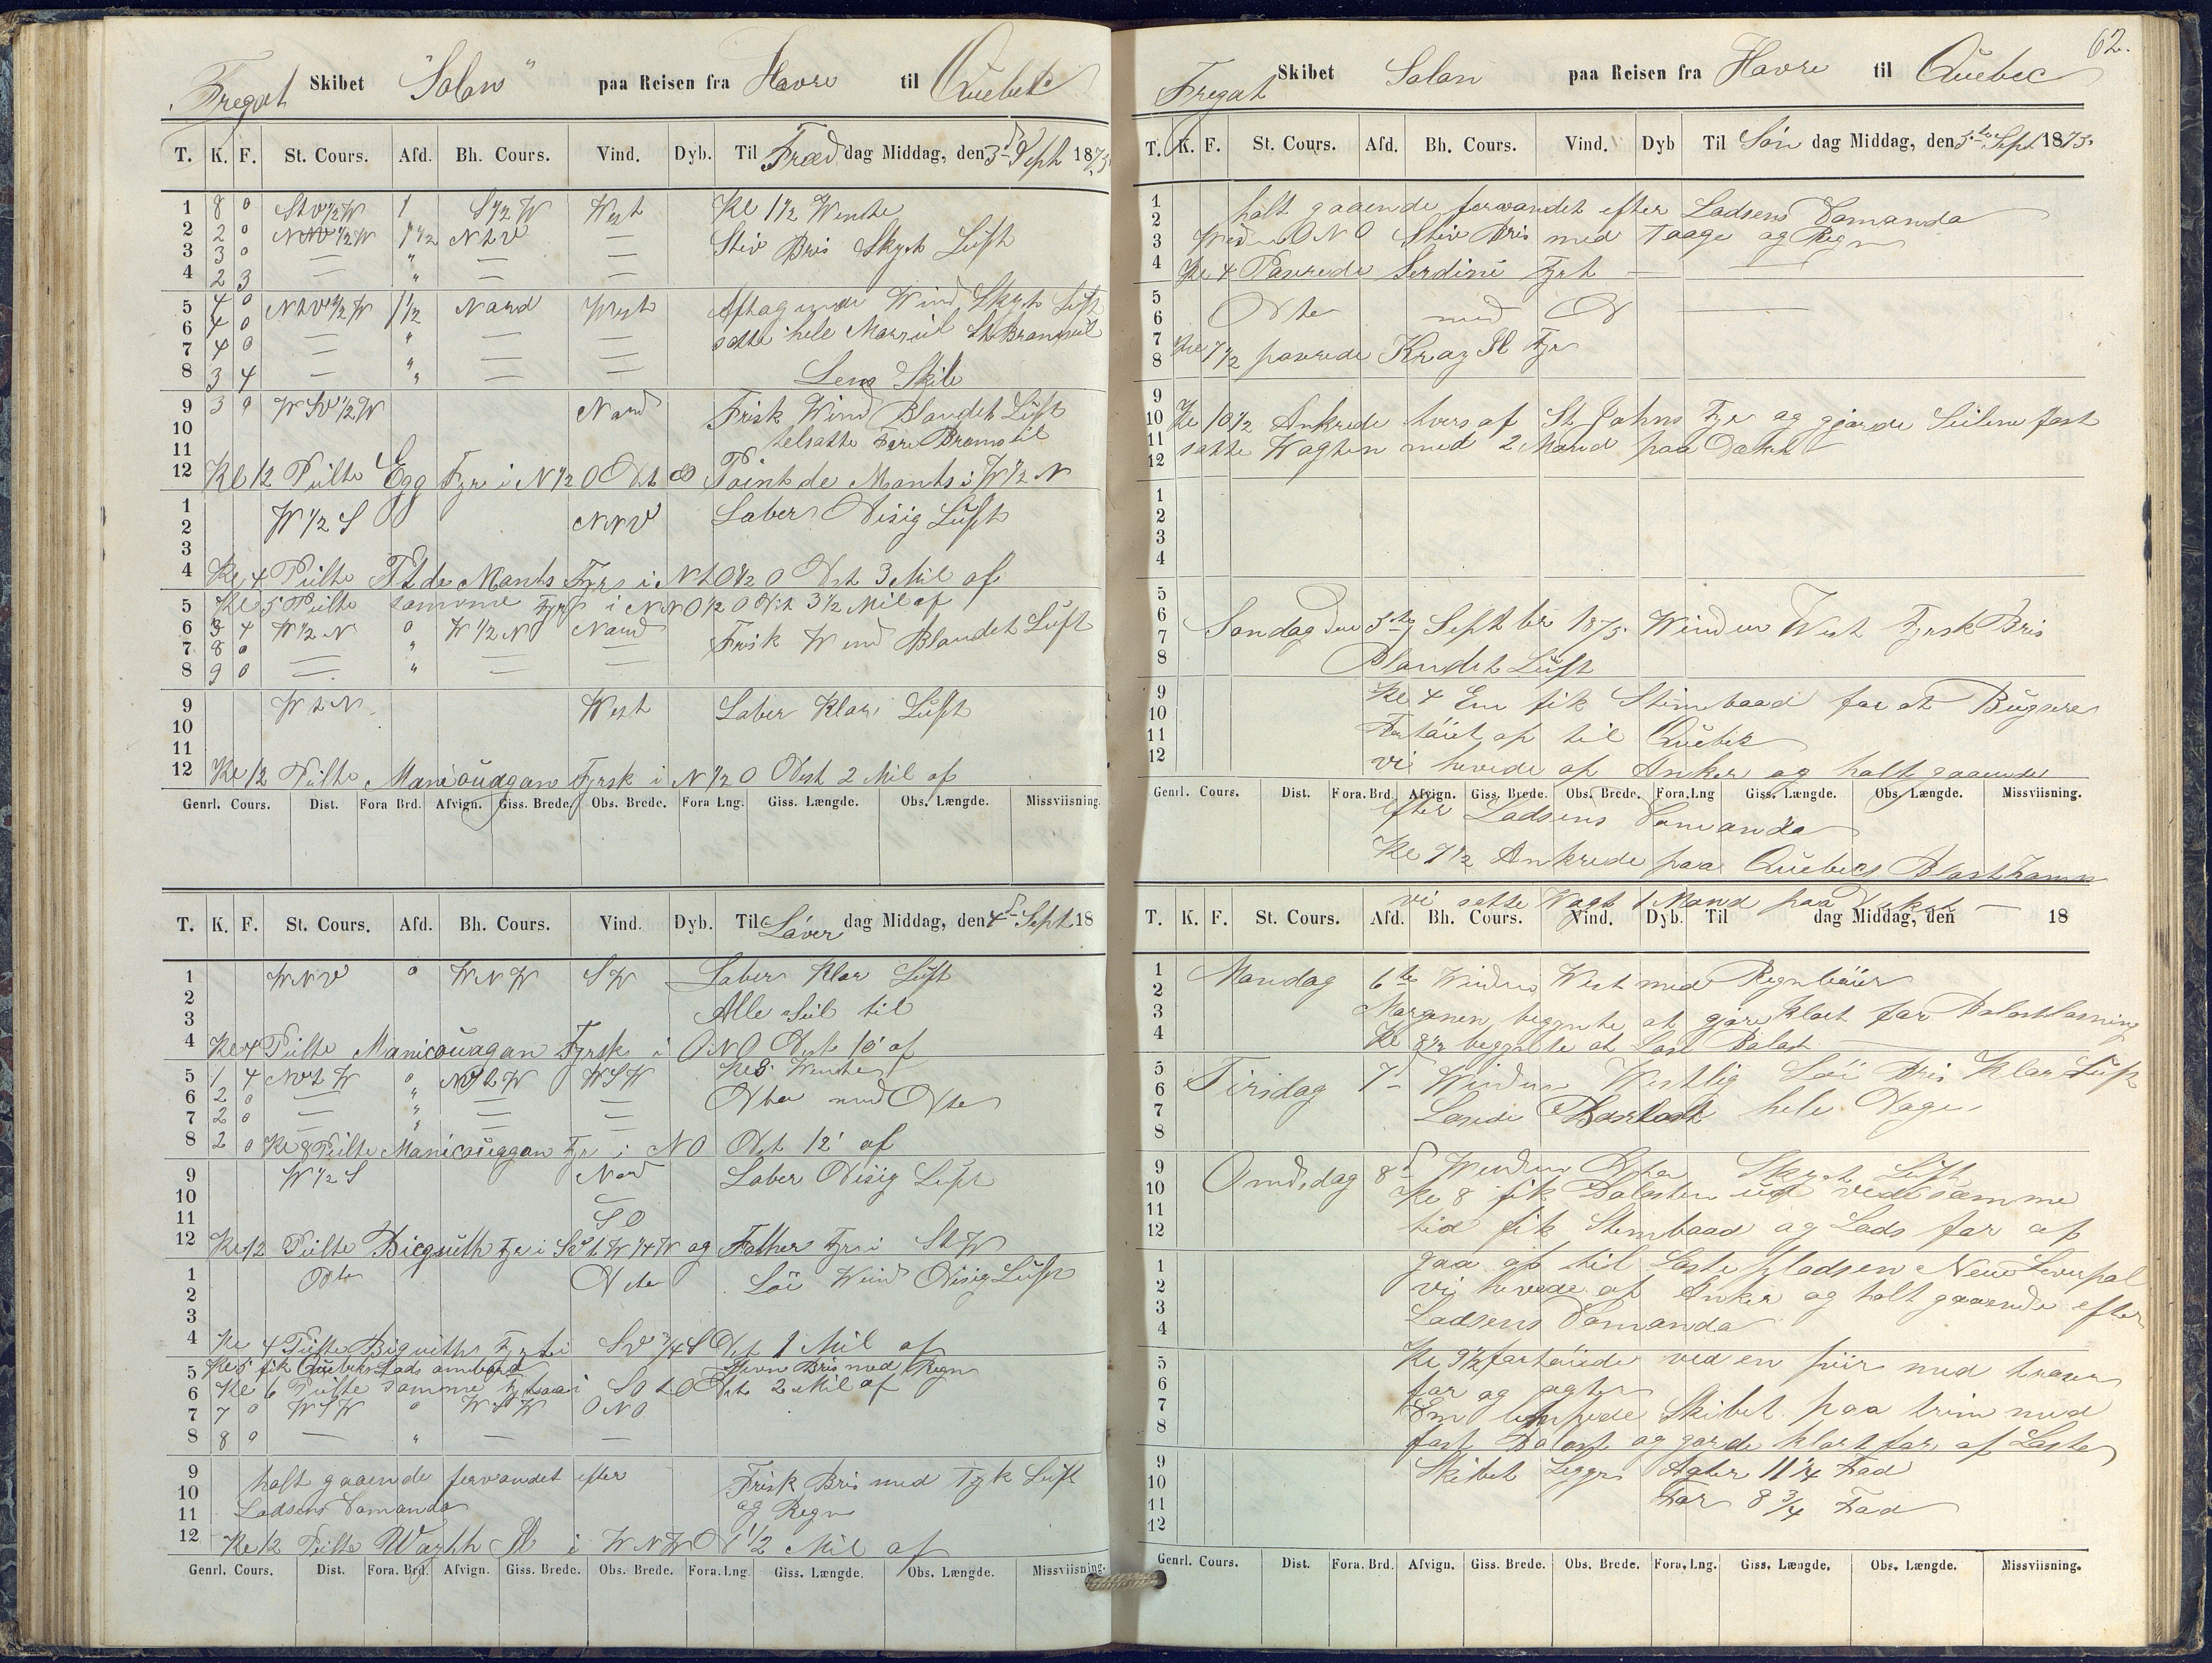 Fregat Skibet "Solon" paa Reisen fra Havre til Quebek
T. K. F. St. Cours. Afd. Bh. Cours. Vind. Dyb. Til Fræd dag Middag, den 3d Sept 1875
1 8 0 StW½W 1 S½W West Kl 1½ Wente
2 2 0 NNW½W 1½ NtW —
3 3 0 — " — — Stiv Bris Skyet Luft
4 2 3 — " — —
5 4 0 NtW½W 1½ Nord West Aftagende Wind Skyet Luft
6 4 0 — — — satte hele Mersseil
7 4 0 — " — —
8 3 4 — " — — Lens Skib
9 3 0 WSW½W Nord Frisk Wind Blandet Luft
10 telsatte Fore Bramseil
11
12 Kl 12 Peilte Egg Fyr i N½O Dst Point de Monts i W½N
1 W½S NNW Laber Disig Luft
2
3
4 Kl 4 Peilte Pt de Monts Fyr i NtO½O Dst 3 Mil af
5 Kl 5 Peilte samme Fyr i NNO½O Dst 3½ Mil af
6 3 4 W½N 0 W½N Nord Frisk Wind Blandet Luft
7 8 0 — " — —
8 9 0 — " — —
9 WtN West Laber Klar Luft
10
11
12 Kl 12 Peilte Manicouagan Fyrsk i N½O Dist 2 Mil af
Genrl. Cours. Dist. Fora Brd. Afvign. Giss. Brede. Obs. Brede. Fora Lng. Giss. Længde. Obs. Længde. Missviisning.
T. K. F. St. Cours. Afd. Bh. Cours. Vind. Dyb. Til Löver dag Middag, den 4d Sept 18
1 WNW 0 WNW SW Laber Klar Luft
2 Alle Seil til
3
4 Kl 4 Peilte Manicouagan Fyrsk i ONO Dst 10' af
5 1 4 NWtW 0 WSW Kl 5 Wente
6 2 0 — " — — Dto med Dto
7 2 0 — " — —
8 2 0 Kl 8 Peilte Manicouagan Fyr i NO Dst 12' af
9 W½S Nord Laber Disig Luft
10 —
11 SO
12 Kl 12 Peilte Bicquith Fyr i StW¼W og Father Fyr i StW
1 Dto Dto Löi Wind Disig Luft
2
3
4 Kl 4 Peilte Biquith Fyr i SW¾S Dst 1 Mil af
5 Kl 5 fik Quebeks Lods ombord Bris med Regn
6 Kl 6 Peilte samme Fyr i SOtO Dst 2 Mil af
7 7 0 WSW 0 WSW ONO
8 8 0 — " — —
9 holt gaaende fervandet efter Frisk Bris med Tyk Luft
10 og Regn
11 Lodsens Comando
12 Kl 12 Peilte i WNW D 1½ Mil af
Genrl. Cours. Dist. Fora. Brd. Afvign. Giss. Brede. Obs. Brede. Fora. Lng. Giss. Længde. Obs. Længde. Missviisning.
62.
Fregat Skibet Solon paa Reisen fra Havre til Quebec
T. K. F. St. Cours. Afd. Bh. Cours. Vind. Dyb Til Søn dag Middag, den 5te Sept 1875.
1
2 holt gaaende farvandet efter Lodsens Comando
3 Wind ONO Stiv Bris med Taage og Regn
4 Kl 4 Paserede Fyr
5
6 Dto med D
7
8 Kl 7½ paserede Fyr
9
10 Kl 10½ Ankrede tvers af St Johns Fyr og gjorde Seilene fast
11 satte Wagten med 2 Mand paa Däkk
12
1
2
3
4
5
6 Søndag den 5te September 1875. Winden West Frsk Bris
7
8 Blandet Luft
9 Kl 4 Em fik Stimbaad for at Bugsere
10
11 Fartöiet op til Quebek
12 vi hevede op Anker og holt gaaende
Genrl. Cours. Dist. Fora. Brd. Afvign. Giss. Brede. Obs. Brede. Fora. Lng Giss. Længde. Obs. Længde. Missviisning.
efter Lodsens Comando
Kl 7½ Ankrede paa Quebeks Blasthamn
vi satte Wagt 1 Mand paa Dekket —
T. K. F. St. Cours. Afd. Bh. Cours. Vind. Dyb. Til dag Middag, den 18
1 Mandag 6te Winden West med Regnbüier
2
3 Morgenen begynte at gjöre Klart for Balastlosning
4 Kl 8½ begynte at Lose Balast
5 Tirsdag 7d Winden Westlig Löi Bris Klar Luft
6
7 Losede Barlast hele Dagen
8
9 Onsdag 8d Winden Dto Skyet Luft
10 Kl 8 fik Balasten ud ved samme
11
12 tid fik Stembaad og Lods for at
1 gaa op til Lastepladsen New Liverpol
2 vi hevede op Anker og holt gaaende efter
3
4 Lodsens Comando
5 Kl 9½ fortöiede ved en piir med traaser
6 for og agter
7 Em Skibet paa trim med
8 fast Balast og gorde klart for at Laste
9 Skibet Ligger Agter 11¼ Fod
10
11 For 8¾ Fod
12
Genrl. Cours. Dist. Fora. Brd. Afvign. Giss. Brede. Obs. Brede. Fora. Lng. Giss. Længde. Obs. Længde. Missviisning.